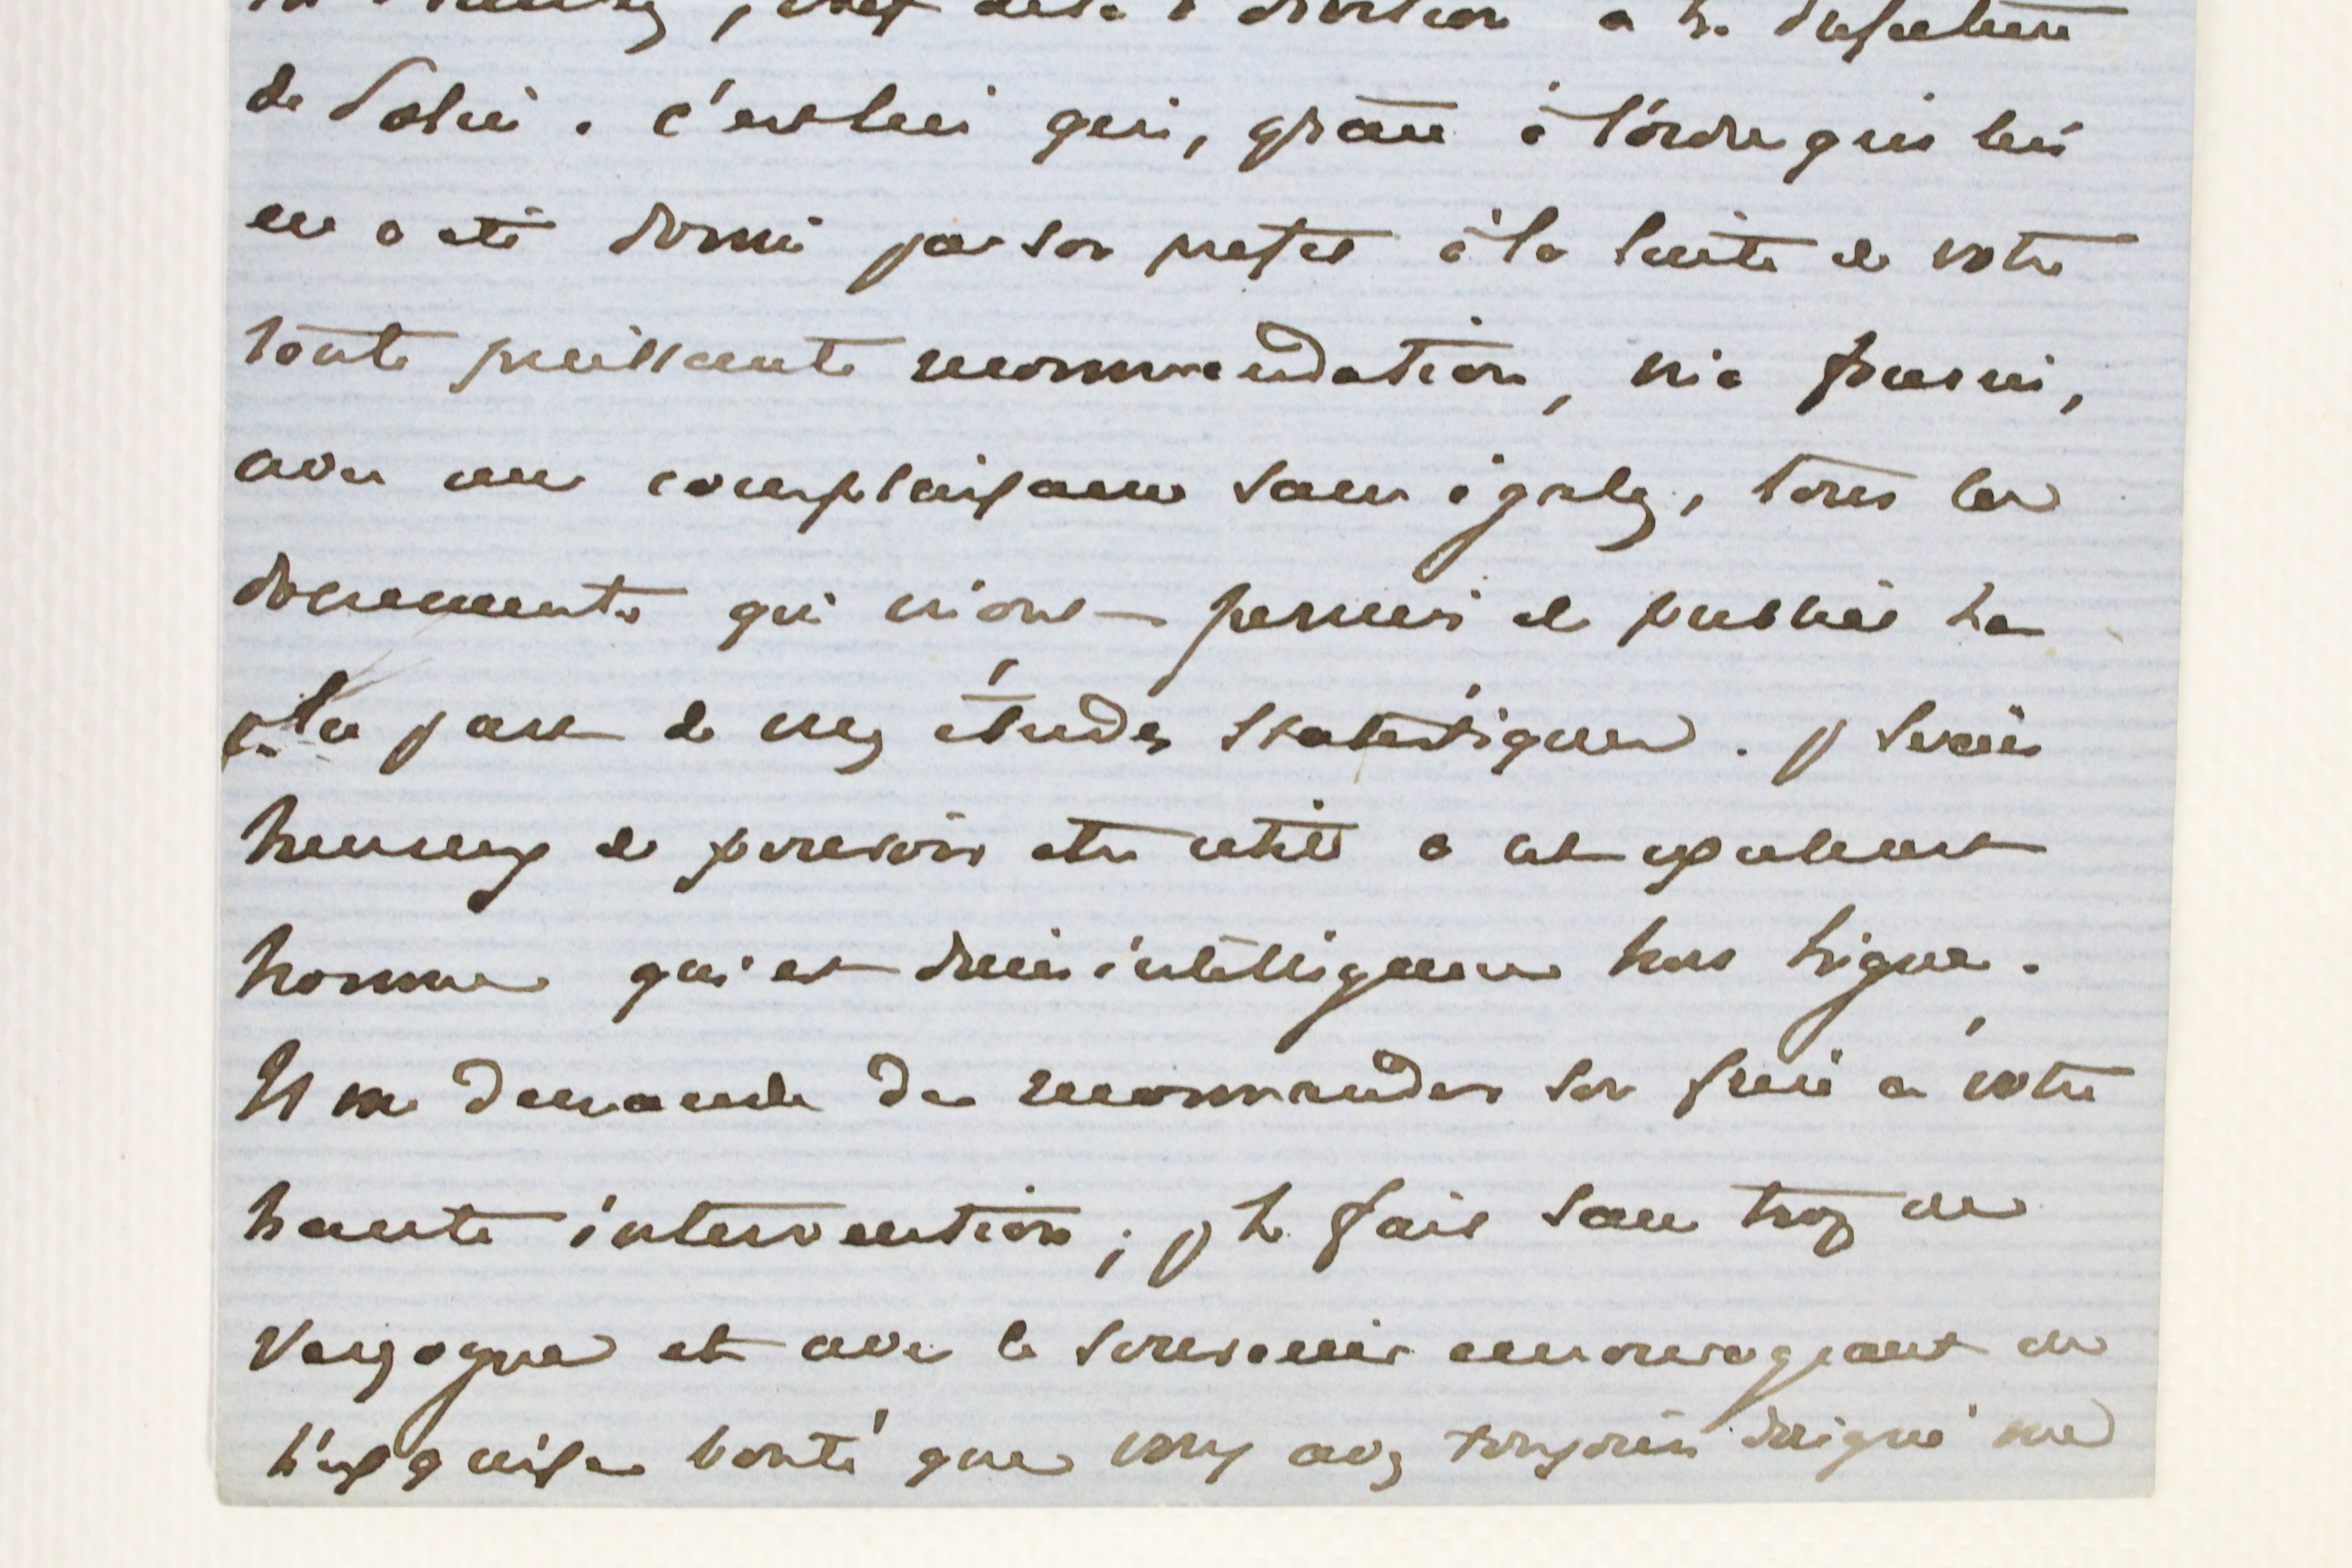 chef de la 1e division à la Préfecture
de Police. c'est lui qui, grâce à l'ordre qui lui
en a été donné par son préfet à la suite de votre
toute puissante recommandation, m'a fourni,
avec une complaisance sans égale, tous les
documents qui m'ont permis de publier la
plupart de mes études statistiques. je serais
heureux de pouvoir être utile à cet excellent
homme qui est d'une intelligence hors ligne.
Il me demande de recommander son frère à votre
haute intervention; je le fais sans trop de
vergogne et avec le souvenir encourageant de
l'exquise bonté que vous avez toujours daigné me